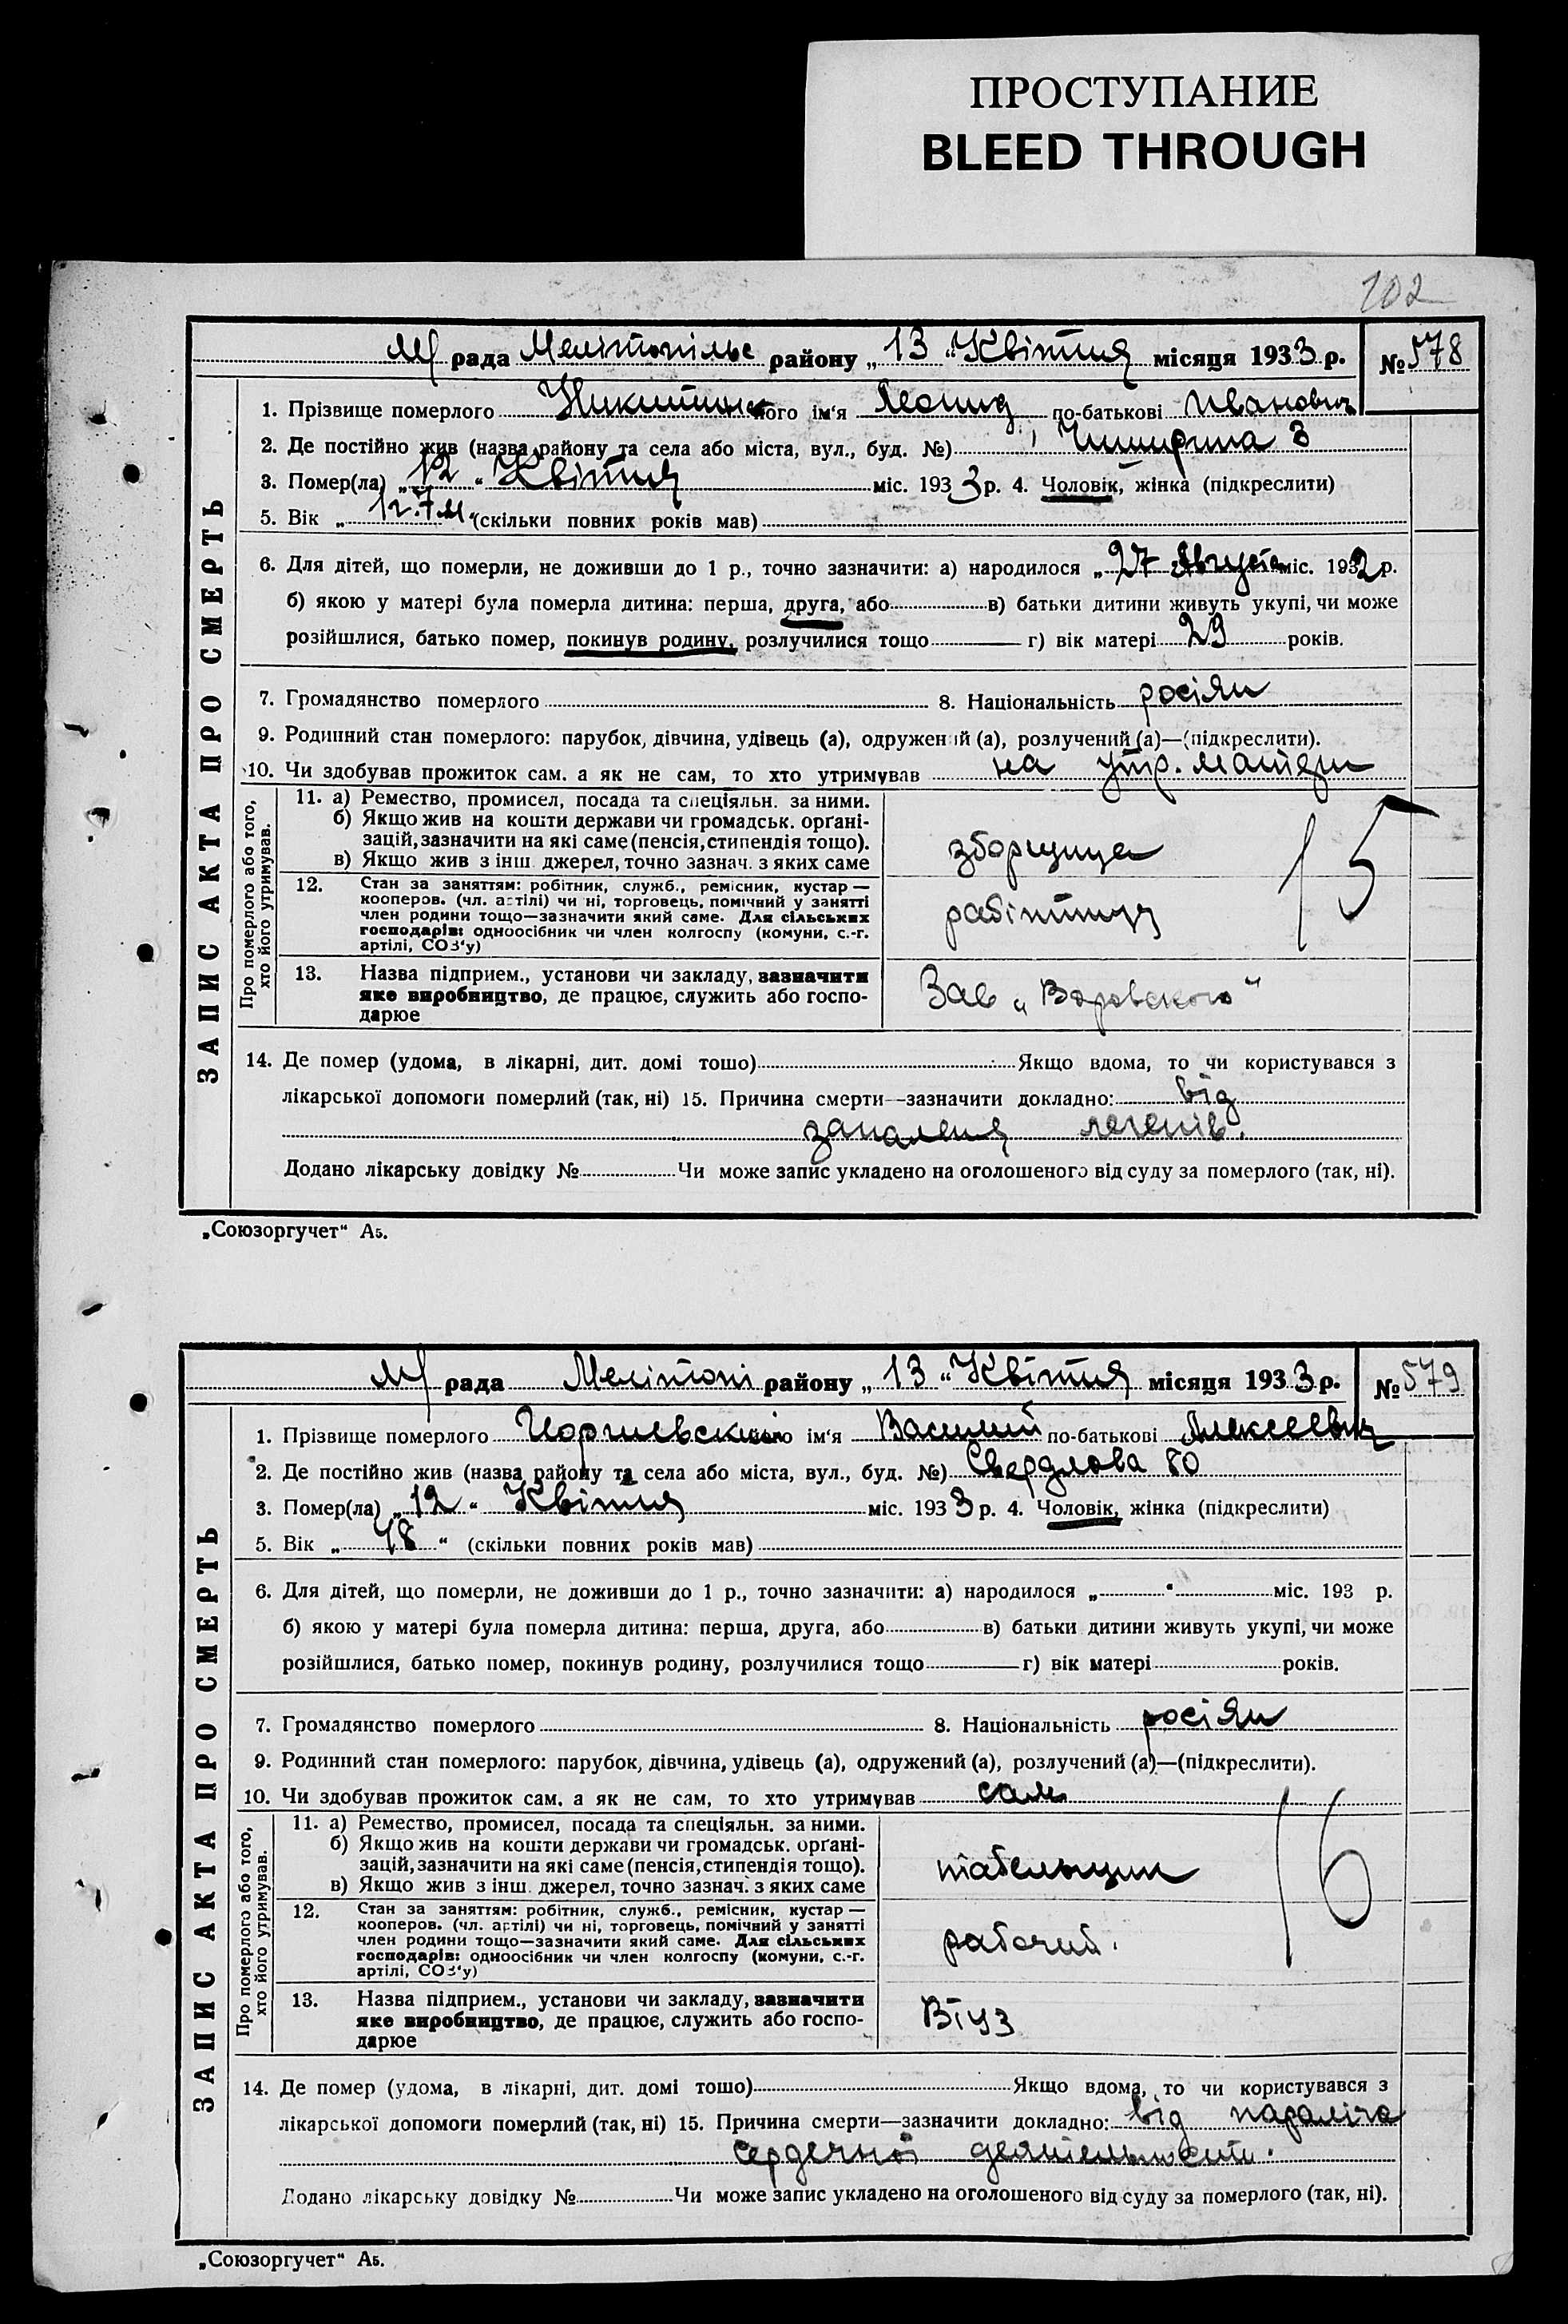 ПРОСТУПАНИЕ
BLEED THROUGH
102
М рада Мелітопільс району „13“ Квітня місяця 1933 р. № 578
1. Прізвище померлого Никитин його ім‘я Леонид по-батькові Иванович
2. Де постійно жив (назва району та села або міста, вул., буд. №) 3
3. Помер(ла) „12“ Квітня міс. 1933 р. 4. Чоловік, жінка (підкреслити)
5. Вік „1 г. 7 м“ (скільки повних років мав)
6. Для дітей, що померли, не доживши до 1 р., точно зазначити: а) народилося „27 Августа міс. 1932 р.
б) якою у матері була померла дитина: перша, друга, або в) батьки дитини живуть укупі, чи може
розійшлися, батько помер, покинув родину, розлучилися тощо г) вік матері 29 років.
7. Громадянство померлого 8. Національність росіян
9. Родинний стан померлого: парубок, дівчина, удівець (а), одружений (а), розлучений (а)—(підкреслити).
10. Чи здобував прожиток сам. а як не сам, то хто утримував на утр. матери
ЗАПИС АКТА ПРО СМЕРТЬ
Про померлого або того, хто його утримував.
11. а) Ремество, промисел, посада та спеціяльн. за ними.
б) Якщо жив на кошти держави чи громадськ. орґані-
зацій, зазначити на які саме (пенсія, стипендія тощо).
в) Якщо жив з інш. джерел, точно зазнач. з яких саме
зборщица
15
12. Стан за заняттям: робітник, служб., ремісник, кустар —
кооперов. (чл. артілі) чи ні, торговець, помічний у занятті
член родини тощо—зазначити який саме. Для сільських
господарів: одноосібник чи член колгоспу (комуни, с.-г.
артілі, СОЗ‘у)
робітниця
13. Назва підприєм., установи чи закладу, зазначити
яке виробництво, де працює, служить або госпо-
дарює
Зав „Воровского“
14. Де помер (удома, в лікарні, дит. домі тощо) Якщо вдома, то чи користувався з
лікарської допомоги померлий (так, ні) 15. Причина смерти—зазначити докладно: від
запаления легенів.
Додано лікарську довідку № Чи може запис укладено на оголошеного від суду за померлого (так, ні).
„Союзоргучет“ А5.
М рада Мелітопі району „13“ Квітня місяця 1933 р. № 579
1. Прізвище померлого його ім‘я Василий по-батькові Алексеевич
2. Де постійно жив (назва району та села або міста, вул., буд. №) Свердлова 80
3. Помер(ла) „12“ Квітня міс. 1933 р. 4. Чоловік, жінка (підкреслити)
5. Вік „48“ (скільки повних років мав)
6. Для дітей, що померли, не доживши до 1 р., точно зазначити: а) народилося „ “ міс. 193 р.
б) якою у матері була померла дитина: перша, друга, або в) батьки дитини живуть укупі, чи може
розійшлися, батько помер, покинув родину, розлучилися тощо г) вік матері років.
7. Громадянство померлого 8. Національність росіян
9. Родинний стан померлого: парубок, дівчина, удівець (а), одружений (а), розлучений (а)—(підкреслити).
10. Чи здобував прожиток сам. а як не сам, то хто утримував сам
ЗАПИС АКТА ПРО СМЕРТЬ
Про померлого або того, хто його утримував.
11. а) Ремество, промисел, посада та спеціяльн. за ними.
б) Якщо жив на кошти держави чи громадськ. орґані-
зацій, зазначити на які саме (пенсія, стипендія тощо).
в) Якщо жив з інш. джерел, точно зазнач. з яких саме
табельщик
16
12. Стан за заняттям: робітник, служб., ремісник, кустар —
кооперов. (чл. артілі) чи ні, торговець, помічний у занятті
член родини тощо—зазначити який саме. Для сільських
господарів: одноосібник чи член колгоспу (комуни, с.-г.
артілі, СОЗ‘у)
рабочий.
13. Назва підприєм., установи чи закладу, зазначити
яке виробництво, де працює, служить або госпо-
дарює
Втуз
14. Де помер (удома, в лікарні, дит. домі тощо) Якщо вдома, то чи користувався з
лікарської допомоги померлий (так, ні) 15. Причина смерти—зазначити докладно: від параліча
сердечної деятельности.
Додано лікарську довідку № Чи може запис укладено на оголошеного від суду за померлого (так, ні).
„Союзоргучет“ А5.